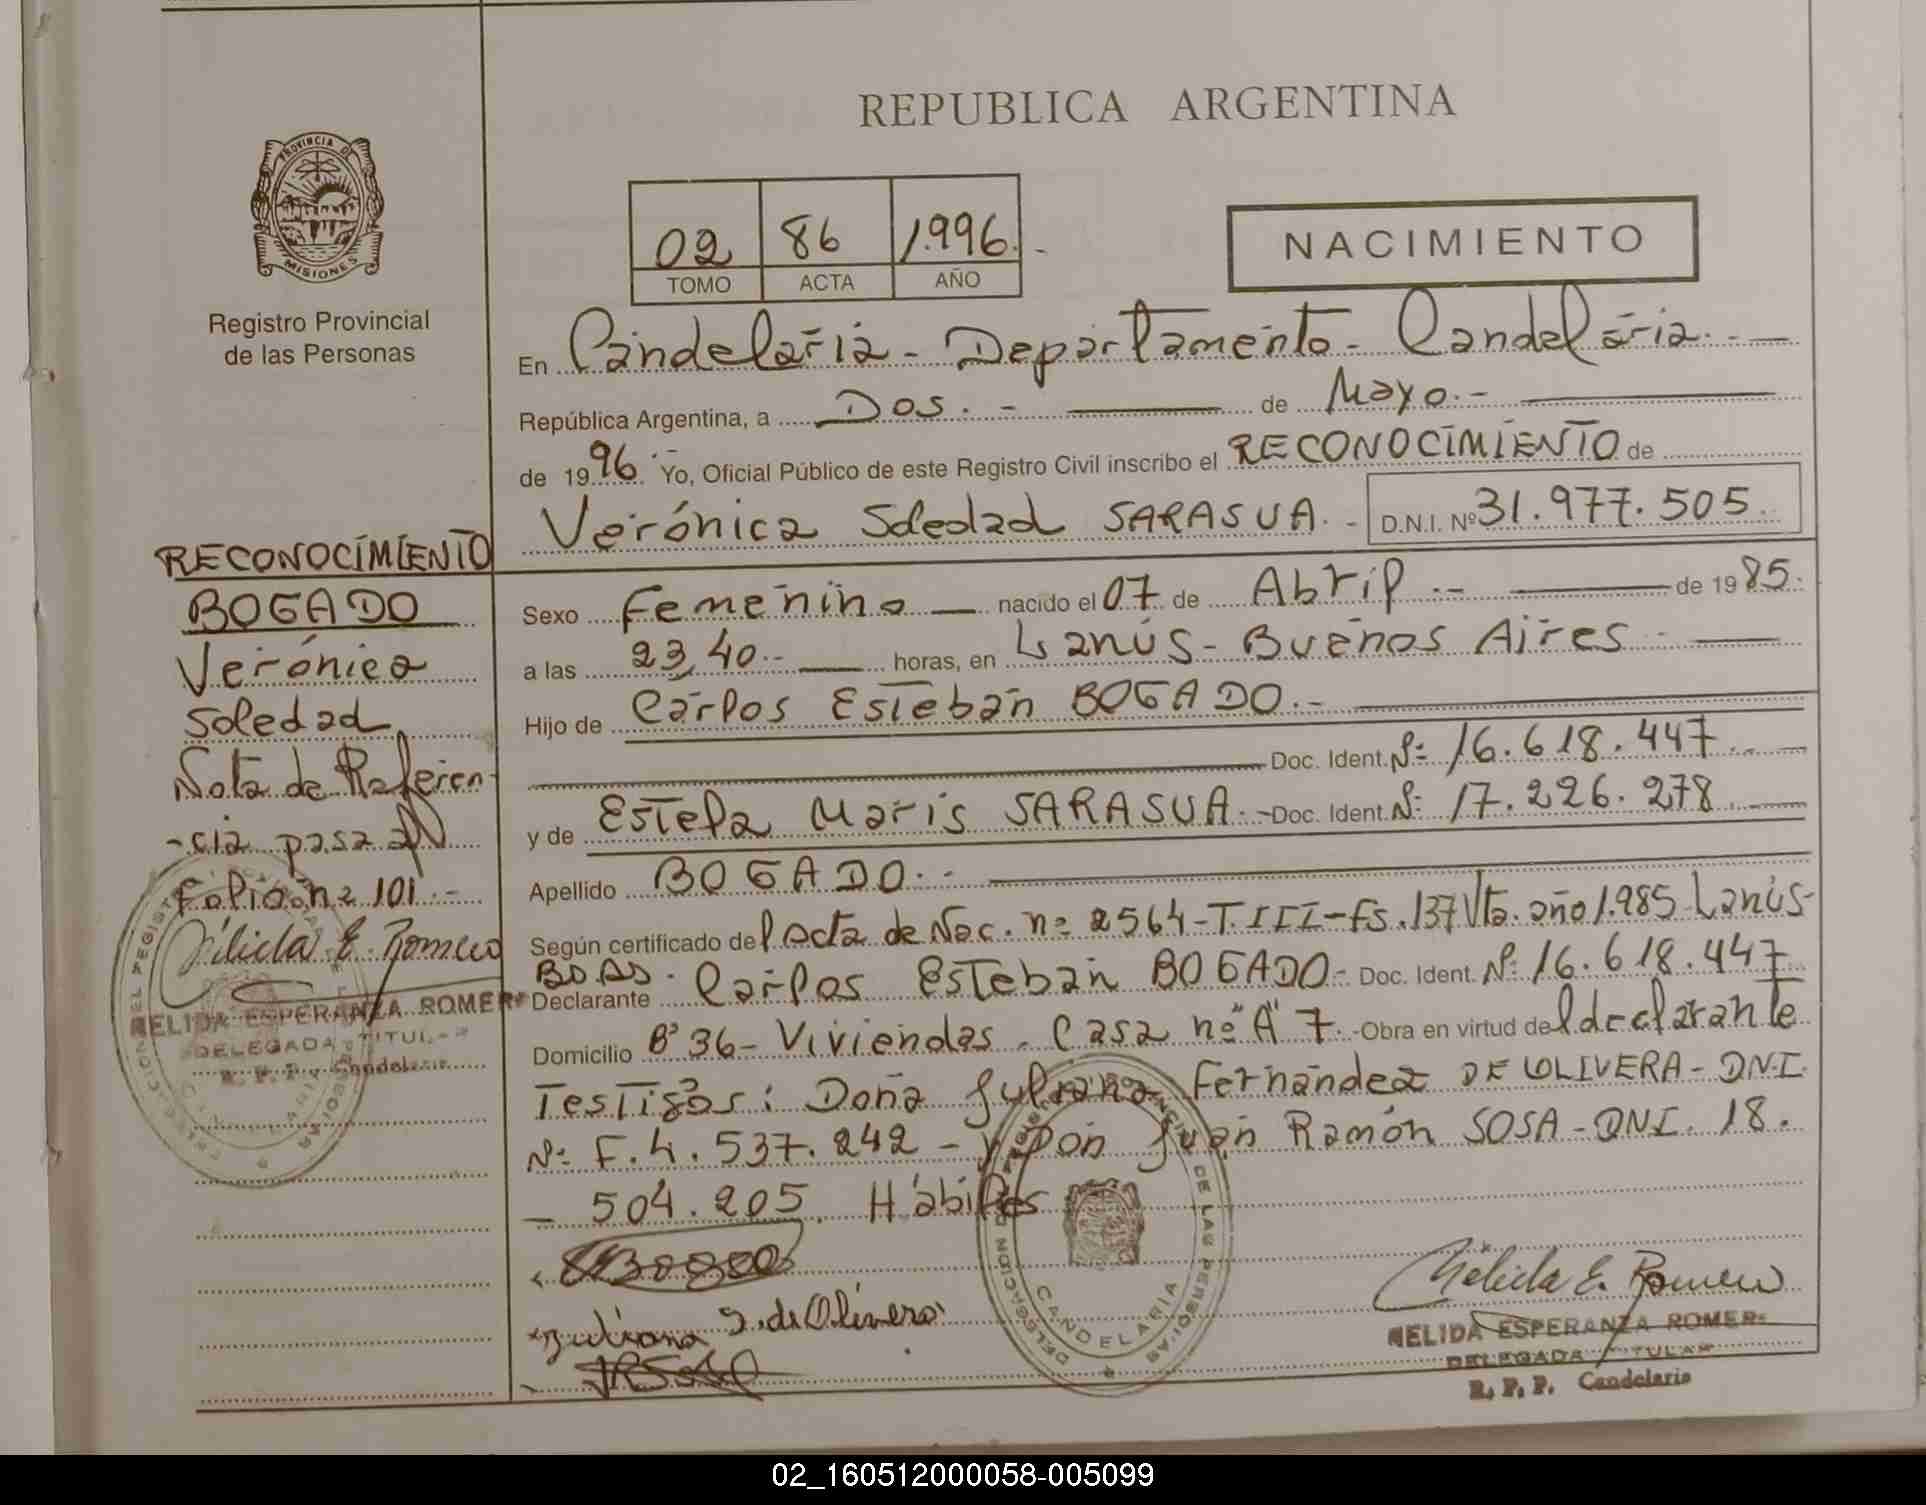 REPUBLICA ARGENTINA
PROVINCIA DE
MISIONES
Registro Provincial
de las Personas
02 86 1.996.-
TOMO ACTA AÑO
NACIMIENTO
En Candelaria - Departamento - Candelaria.-
República Argentina, a Dos.- de Mayo.-
de 1996.- Yo, Oficial Público de este Registro Civil inscribo el RECONOCIMIENTO de
Verónica Soledad SARASUA.- D.N.I. Nº 31.977.505.
Sexo Femenino nacido el 07 de Abril.- de 1985.
a las 23,40.- horas, en Lanús - Buenos Aires
Hijo de Carlos Esteban BOGADO.-
Doc. Ident. Nº 16.618.447.-
y de Estela Maris SARASUA.- Doc. Ident. Nº 17.226.278.
Apellido BOGADO.-
Según certificado del acta de Nac. nº 2564-T.III-Fs.137 Vta. año 1.985 Lanús-
Bs.As.
Declarante Carlos Esteban BOGADO.- Doc. Ident. Nº 16.618.447
Domicilio Bº 36 - Viviendas. Casa nº "A" 7.- Obra en virtud del declarante
Testigos: Doña Juliana Fernández DE OLIVERA - DNI.
Nº F.4.537.242 - y Don Juan Ramón SOSA - DNI. 18.
- 504.205. Hábiles
Juliana F. de Olivera
Nélida E. Romero
NELIDA ESPERANZA ROMERO
DELEGADA TITULAR
R. P. P. Candelaria
DELEGACION DEL REGISTRO PROVINCIAL DE LAS PERSONAS
CANDELARIA
RECONOCIMIENTO
BOGADO
Verónica
Soledad
Nota de Referen-
-cia pasa al
Folio nº 101.-
Nélida E. Romero
NELIDA ESPERANZA ROMERO
DELEGADA TITULAR
R. P. P. Candelaria
02_160512000058-005099